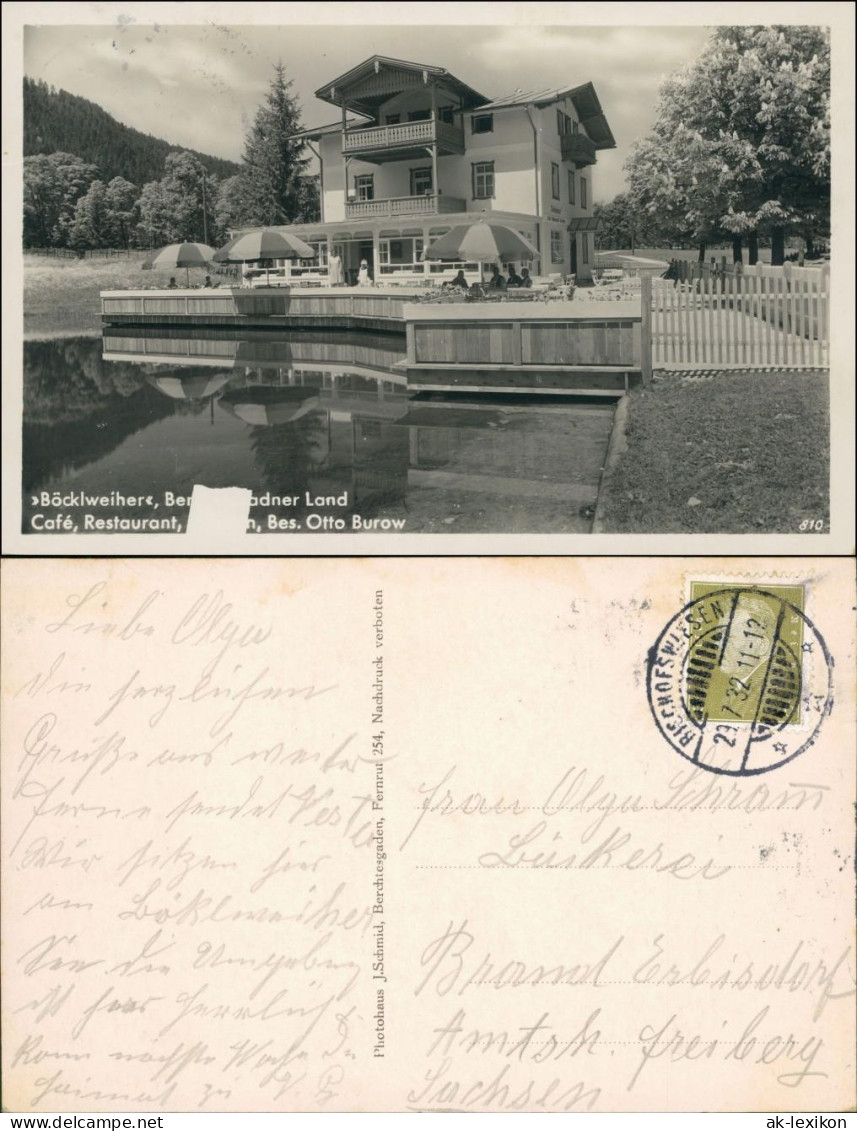 »Böcklweiher«, Ber adner Land
Café, Restaurant, n, Bes. Otto Burow
810
Liebe Olga
Die herzlichen
Grüße aus weiter
ferne sendet
Wir sitzen hier
am Böklweiher
See die Umgebung
ist hier herrlich
Komm nächste Woche
heimat zu
Photohaus J.Schmid, Berchtesgaden, Fernruf 254, Nachdruck verboten
BISCHOFSWIESEN
29.7.32. 11-12
Frau Olga Schramm
Bäckerei
Brand Erbisdorf
Amtsh. freiberg
Sachsen
delcampe.net
ak-lexikon